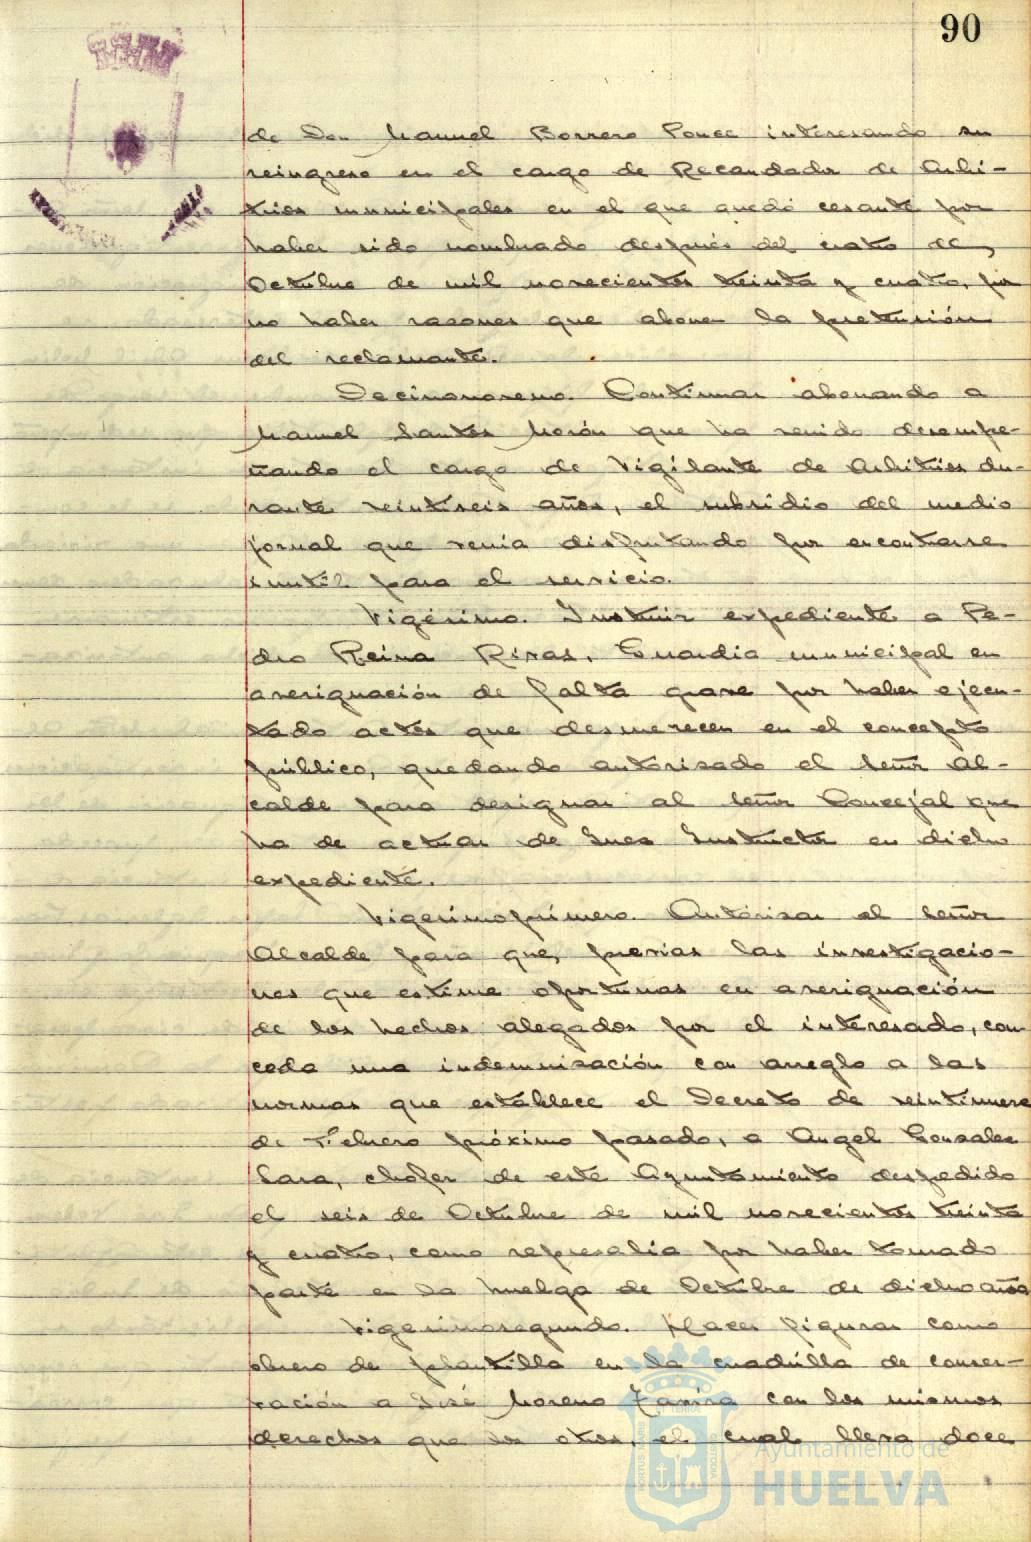 90
de Don Manuel Borrero Ponce interesando su
reingreso en el cargo de Recaudador de Arbi-
trios municipales en el que quedó cesante por
haber sido nombrado después del cuatro de
Octubre de mil novecientos treinta y cuatro, por
no haber razones que abonen la pretensión
del reclamante.
Decimonoveno. Continuar abonando a
Manuel Santos Morón que ha venido desempe-
ñando el cargo de Vigilante de Arbitrios du-
rante veintiseis años, el subsidio del medio
jornal que venía disfrutando por encontrarse
inutil para el servicio.
Vigésimo. Instruir expediente a Pe-
dro Reina Rivas, Guardia municipal en
averiguación de falta grave por haber ejecu-
tado actos que desmerecen en el concepto
público, quedando autorizado el Señor Al-
calde para designar al Señor Concejal que
ha de actuar de Juez Instructor en dicho
expediente.
Vigesimoprimero. Autorizar al Señor
Alcalde para que, previas las investigacio-
nes que estime oportunas en averiguación
de los hechos alegados por el interesado, con-
ceda una indemnización con arreglo a las
normas que establece el Decreto de veintinueve
de Febrero próximo pasado, a Angel Gonzalez
Lara, chofer de este Ayuntamiento despedido
el seis de Octubre de mil novecientos treinta
y cuatro, como represalia por haber tomado
parte en la huelga de Octubre de dicho año
Vigesimosegundo. Hacer figurar como
obrero de plantilla en la cuadrilla de conser-
vación a José Moreno con los mismos
derechos que los otros, el cual lleva doce
Ayuntamiento de
HUELVA